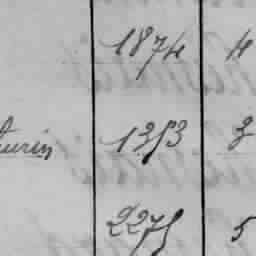 1874 4
turin 1353 3
2275 5